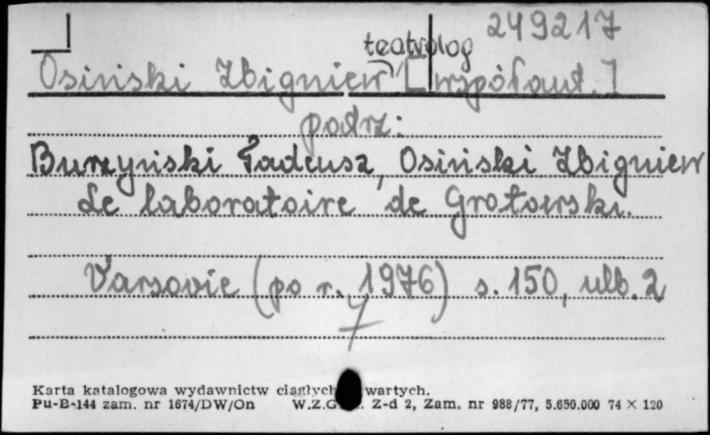 249217
teatrolog
Osiński Zbigniew [współaut.]
patrz:
Burzyński Tadeusz, Osiński Zbigniew
Le laboratoire de Grotowski.
Varsovie (po r. 1976) s. 150, ulb. 2
7
Karta katalogowa wydawnictw ciągłych wartych.
Pu-B-144 zam. nr 1674/DW/On W.Z.G. Z-d 2, Zam. nr 988/77, 5.650.000 74 × 120